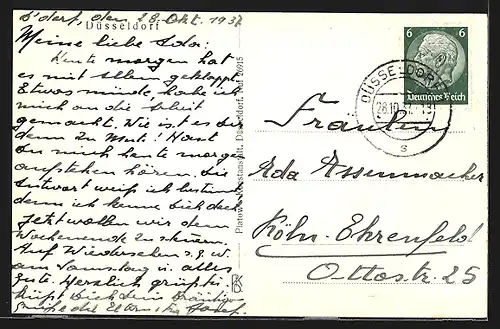 D'dorf, den 28. Okt. 1937
Düsseldorf
Meine liebe Ada!
Heute morgen hat
es mit allem geklappt.
Etwas müde, habe ich
mich an die Arbeit
gemacht. Wie ist es dir
denn zu Mut! Hast
du mich heute morgen
aufstehen hören. Die
Antwort weiß ich bestimmt
denn ich kenne dich doch.
Jetzt wollen wir dem
Wochenende zu steuern.
Auf Wiedersehen
am Samstag u. alles
Gute. Herzlich grüßt u.
küßt Dich dein Bräutigam
Grüße die Eltern Josef.
Kunstanstalt, Düsseldorf, Ruf 26915
6 6
Deutsches Reich
DÜSSELDORF
28.10.37
s
Fräulein
Ada Assenmacher
Köln-Ehrenfeld
Ottostr. 25